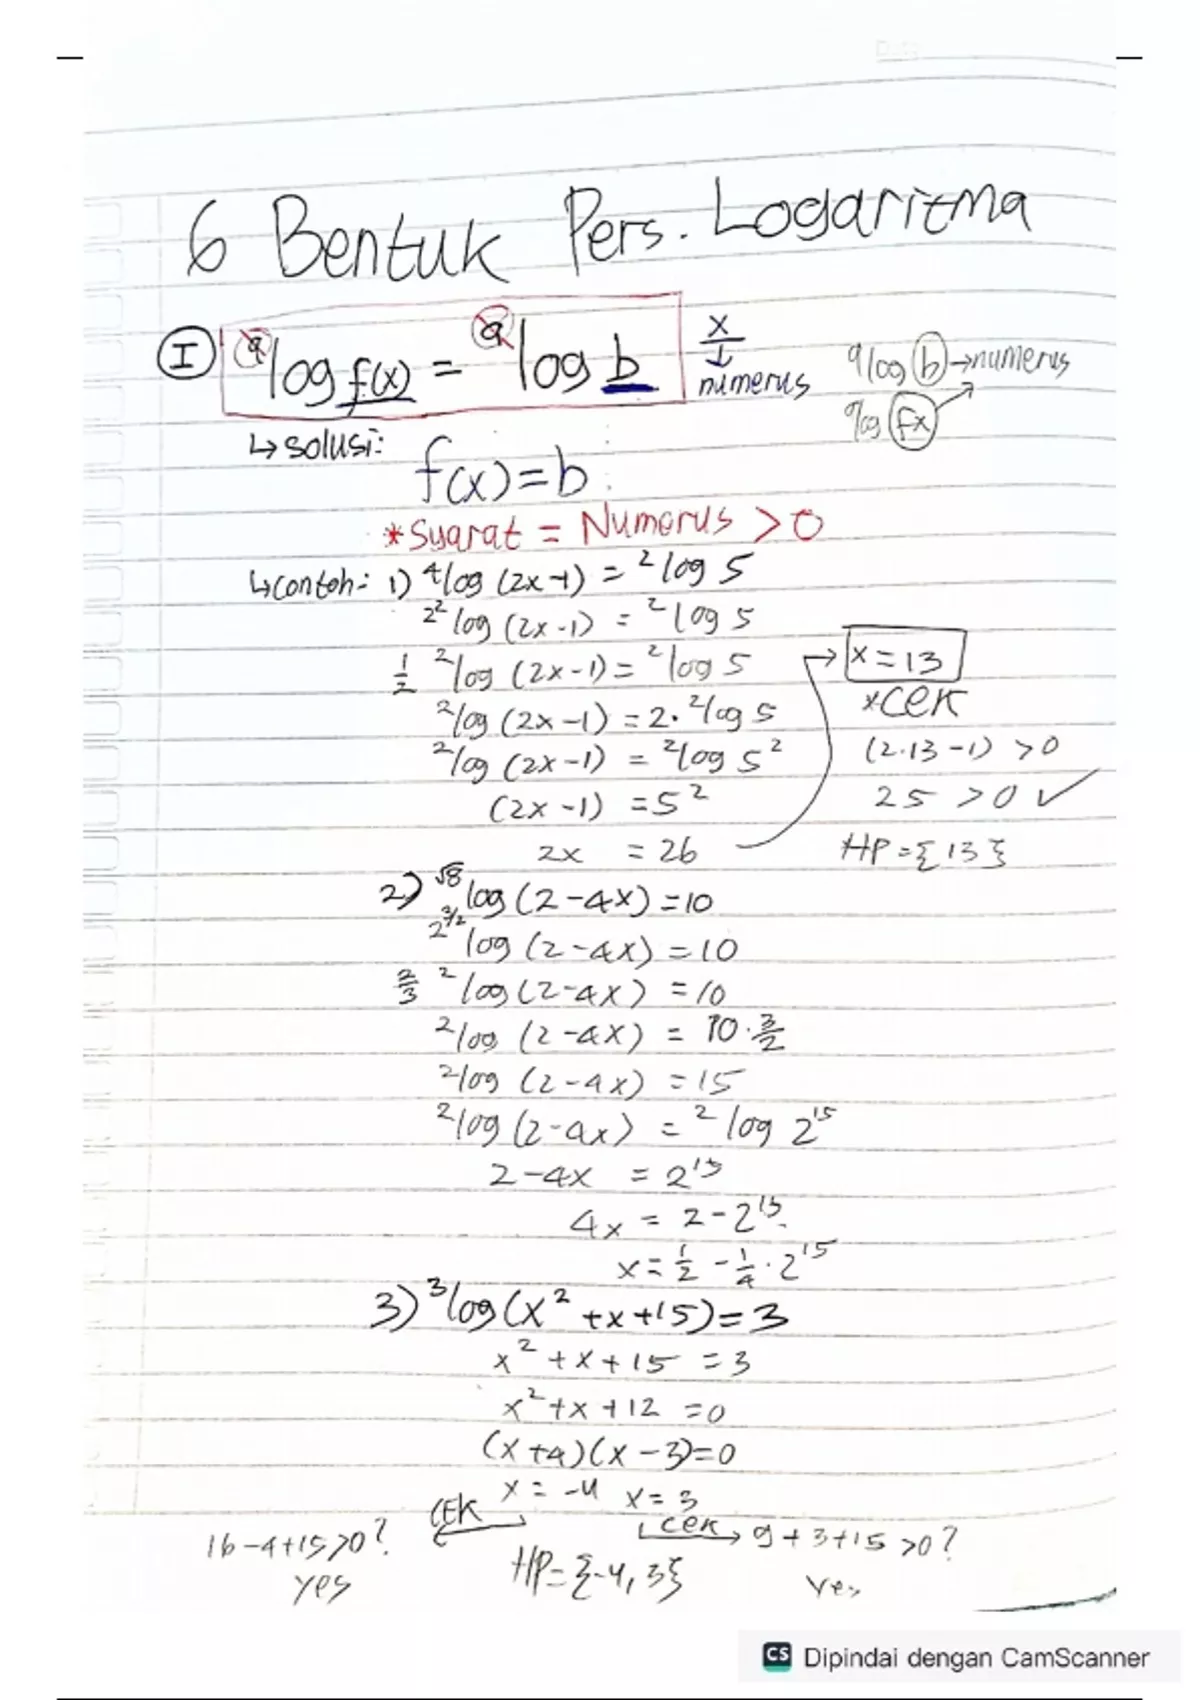 6 Bentuk Pers. Logaritma
I ᵃlog f(x) = ᵃlog b
x
↓
numerus
ᵃlog b → numerus
ᵃlog fx
↳ solusi:
f(x) = b
* Syarat = Numerus > 0
↳ contoh: 1) ⁴log (2x-1) = ²log 5
2² log (2x-1) = ²log 5
1/2 ²log (2x-1) = ²log 5
²log (2x-1) = 2. ²log 5
²log (2x-1) = ²log 5²
(2x-1) = 5²
2x = 26
→ x = 13
*CEK
(2.13-1) > 0
25 > 0 ✓
HP = {13}
2) √8 log (2-4x) = 10
2^3/2 log (2-4x) = 10
2/3 ²log (2-4x) = 10
²log (2-4x) = 10. 3/2
²log (2-4x) = 15
²log (2-4x) = ²log 2¹⁵
2-4x = 2¹⁵
4x = 2-2¹⁵
x = 1/2 - 1/4 . 2¹⁵
3) ³log (x² + x + 15) = 3
x² + x + 15 = 3
x² + x + 12 = 0
(x+4)(x-3) = 0
x = -4 x = 3
CEK
16-4+15>0?
yes
CEK → 9+3+15 >0?
Yes
HP = {-4, 3}
CS Dipindai dengan CamScanner